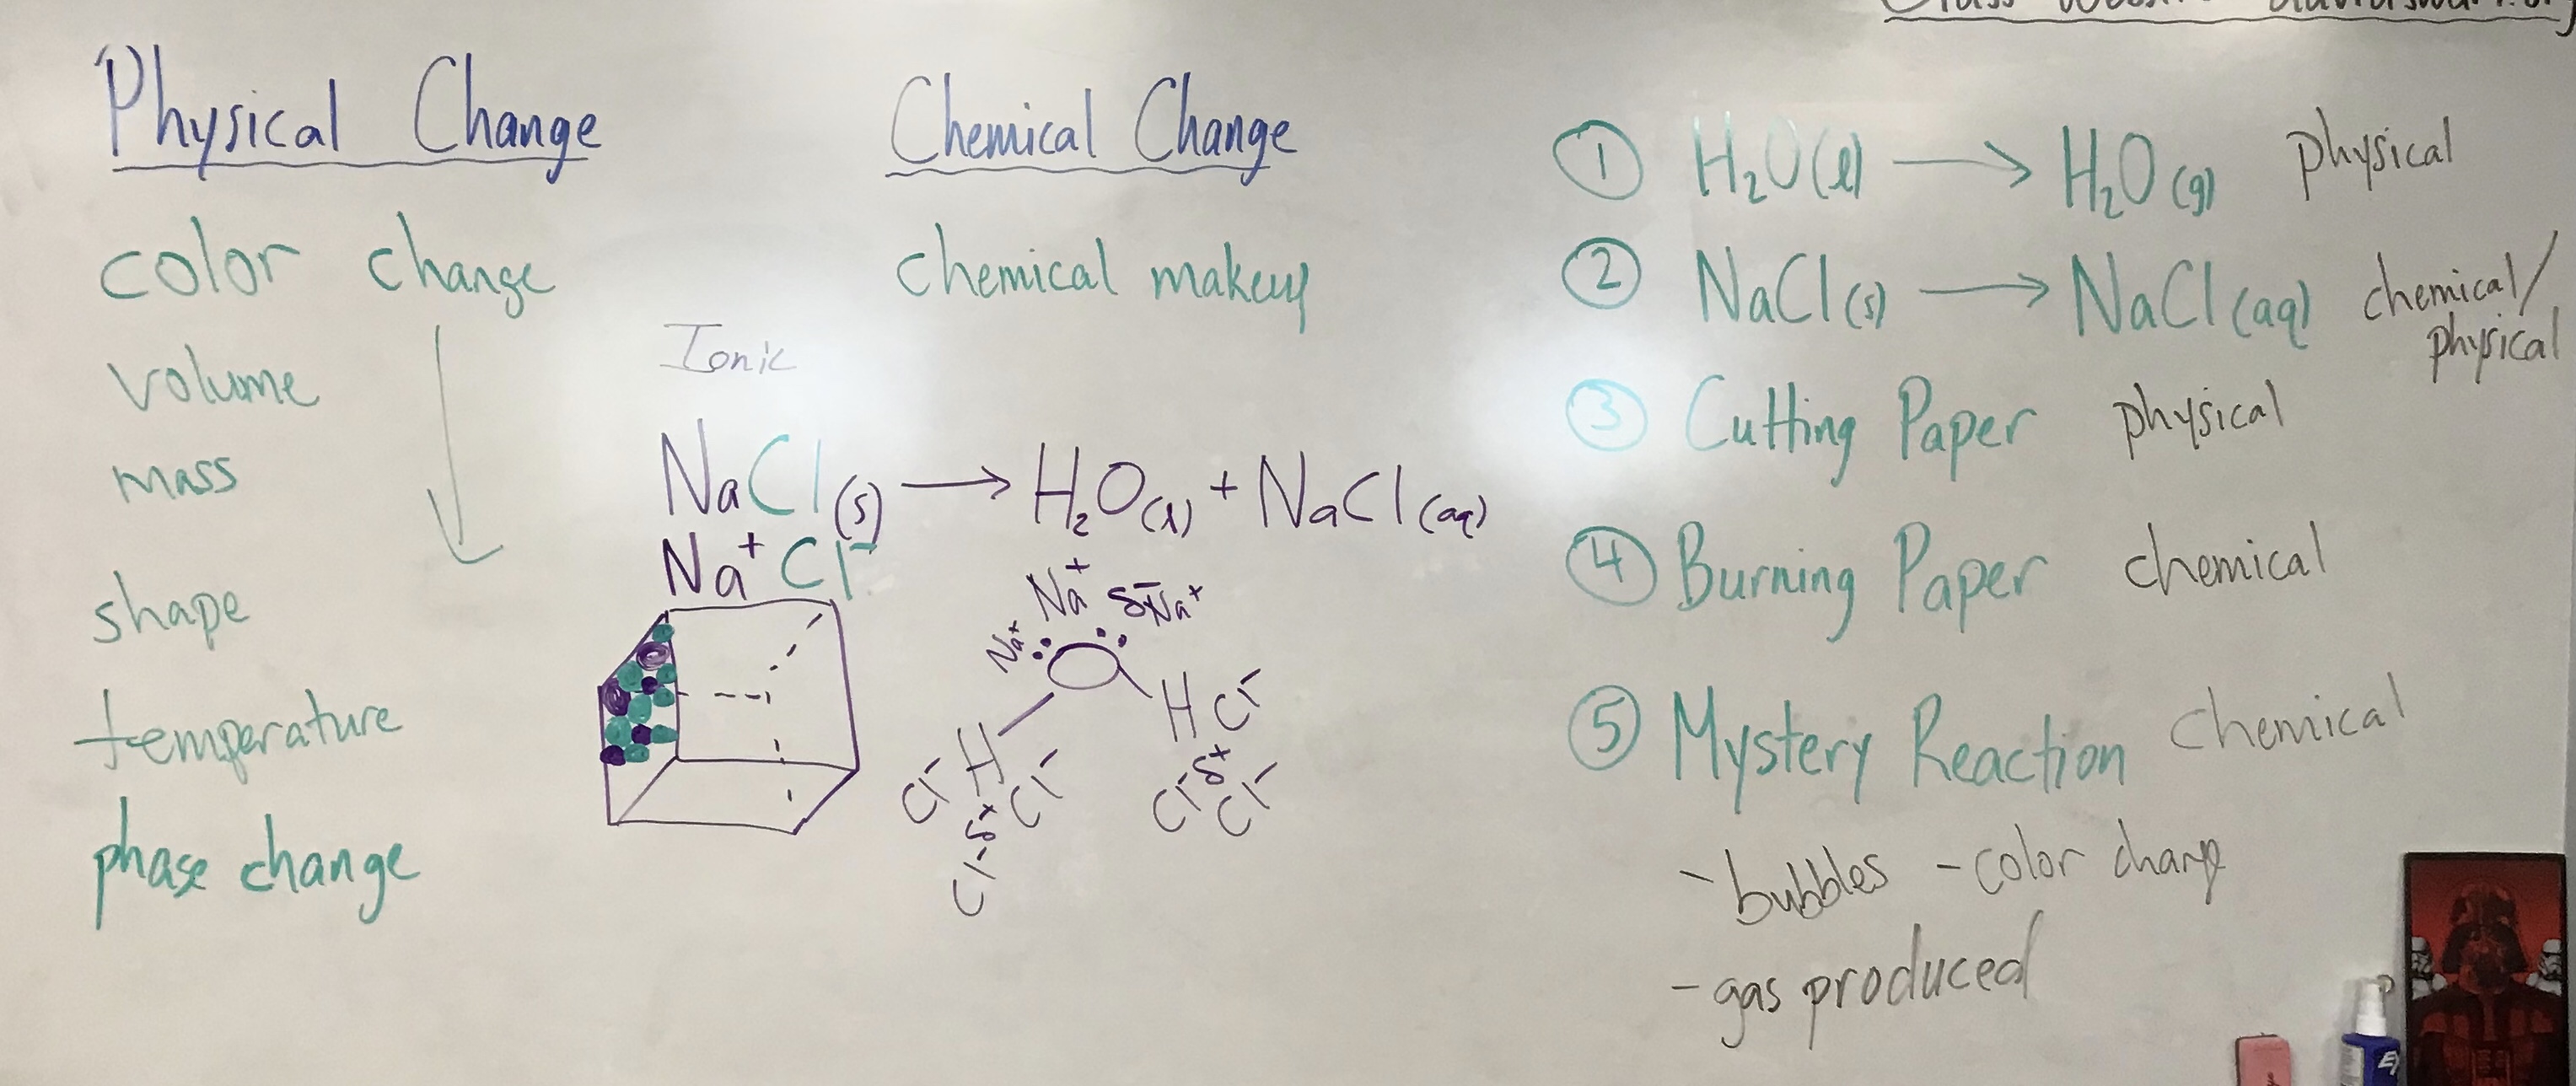 Physical Change
color change
volume
mass
shape
temperature
phase change
Chemical Change
chemical makeup
Ionic
NaCl(s) → H₂O(l) + NaCl(aq)
Na⁺ Cl⁻
Na⁺ δ⁻ Na⁺
Na⁺
H Cl⁻
H δ⁺
Cl⁻ Cl⁻ Cl⁻ Cl⁻
δ⁺
Cl⁻
① H₂O(l) → H₂O(g) physical
② NaCl(s) → NaCl(aq) chemical/
physical
③ Cutting Paper physical
④ Burning Paper chemical
⑤ Mystery Reaction chemical
- bubbles - color change
- gas produced